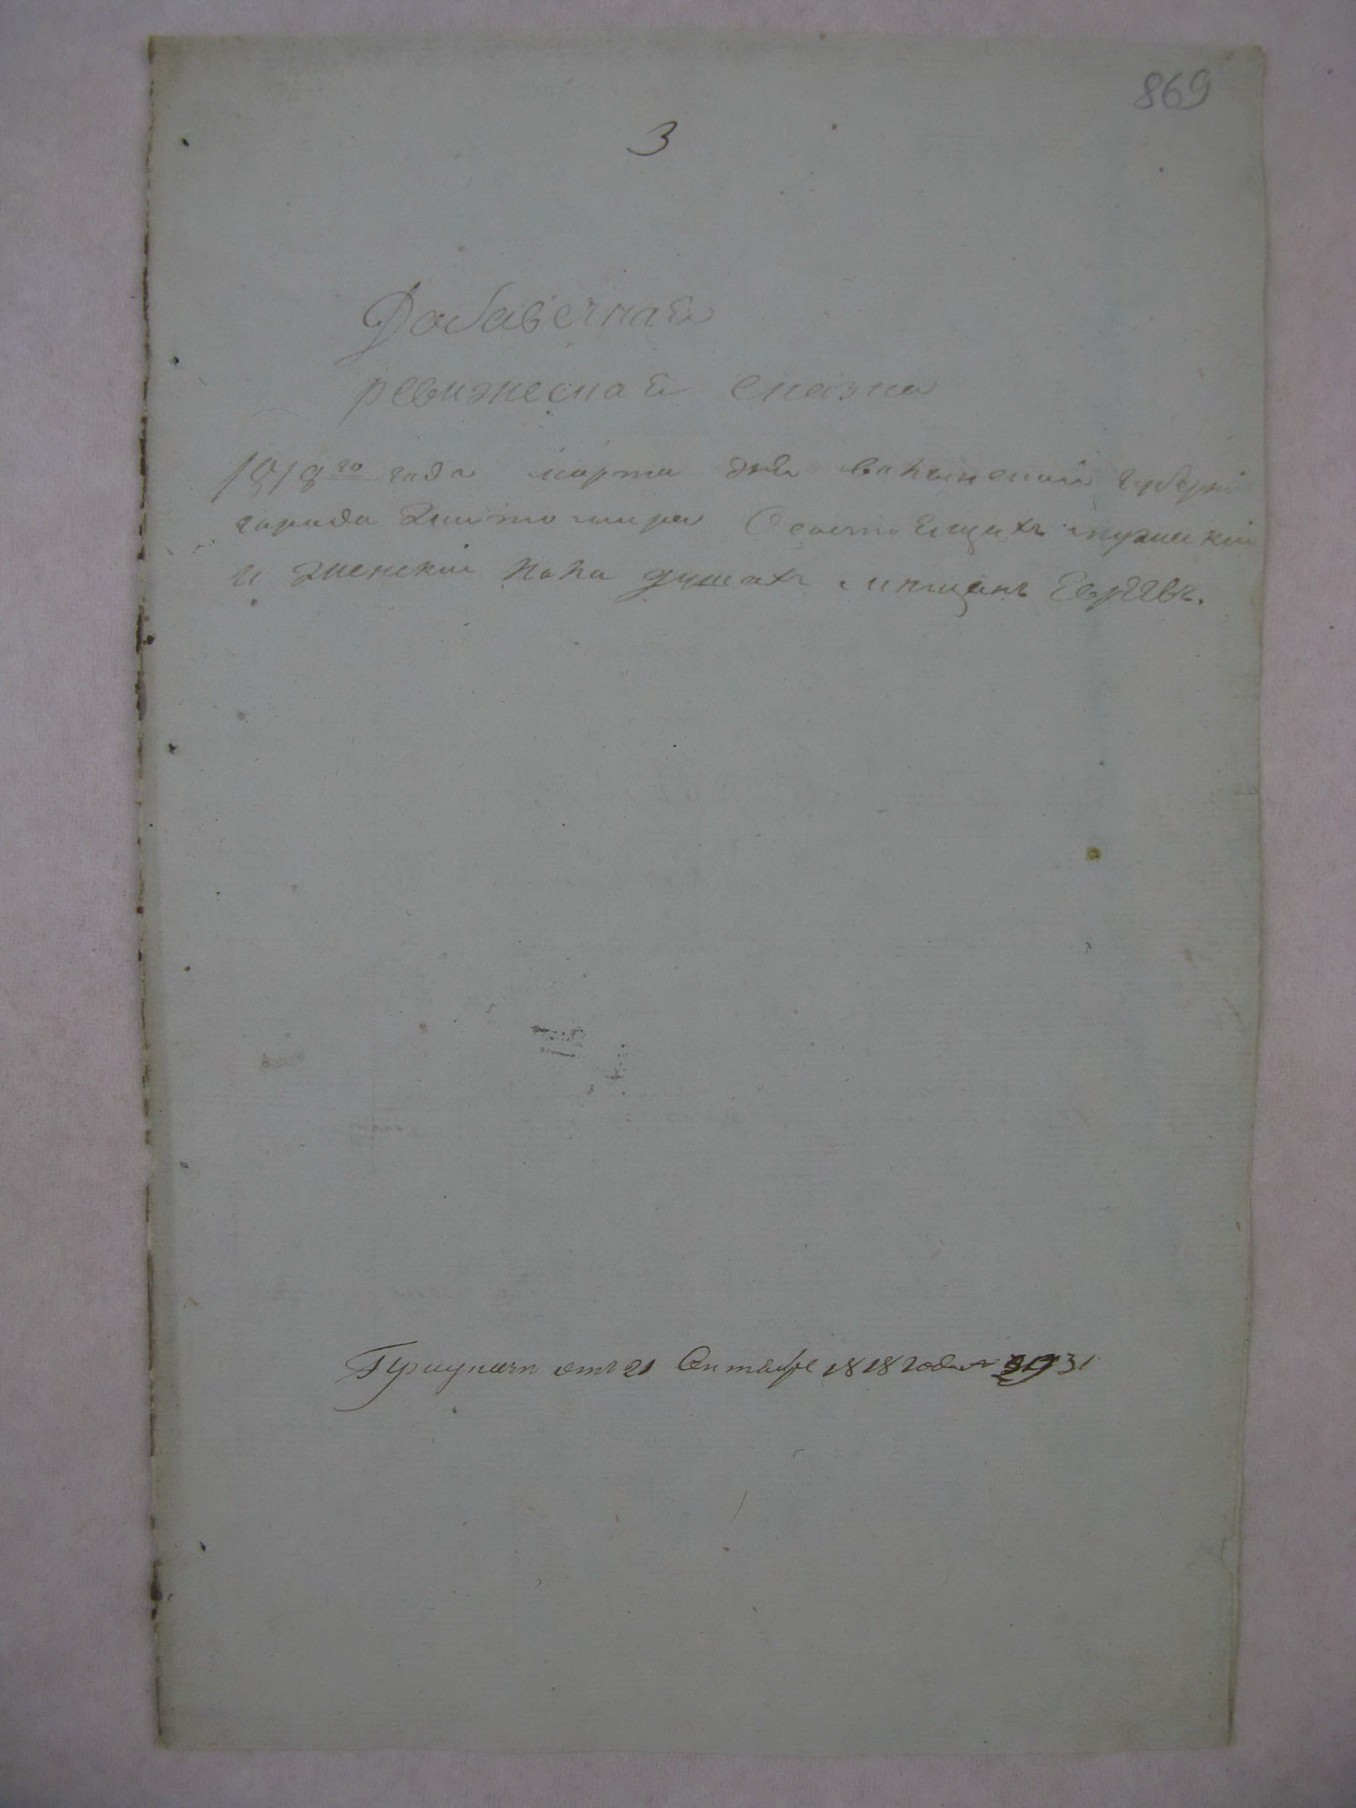 869
3
Добавечная
ревижеская сказка
1818го года марта дня волынской губерни
города Житомира О состоящихъ мужеский
и женский пола душахъ мещанъ Евреевъ.
отъ 21 Октября 1818 года № 31